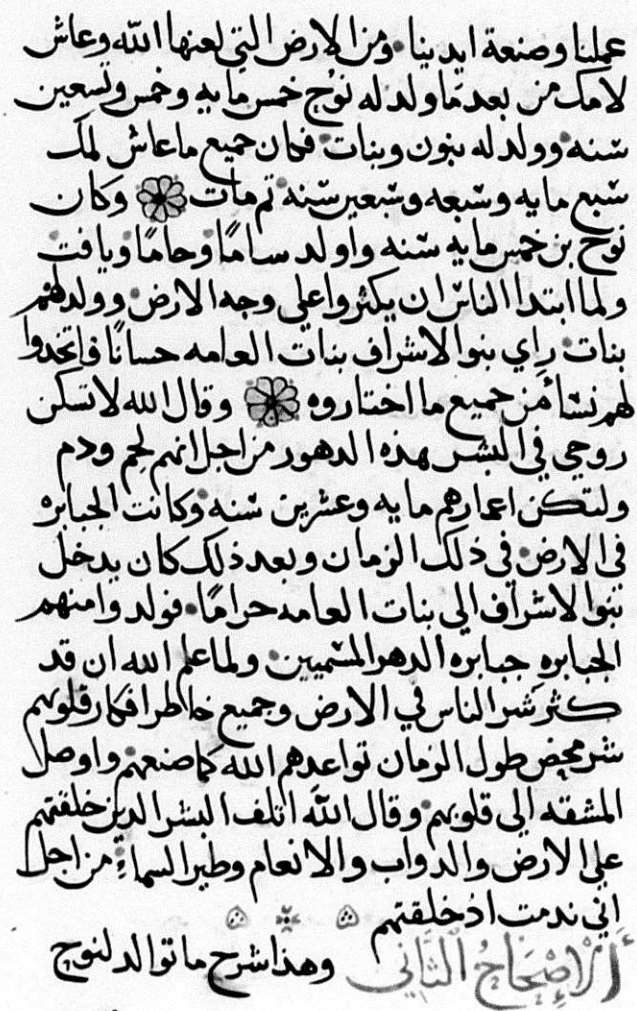 عملنا وصنعة ايدينا ومن الارض التي لعنها الله وعاش
لامك من بعد ما ولد له نوح خمس مايه وخمس وتسعين
سنه وولد له بنون وبنات فكان جميع ما عاش لمك
سبع مايه وسبعه وسبعين سنه ثم مات وكان
نوح بن خمس مايه سنه واولد سامًا وحامًا ويافت
ولما ابتدا الناس ان يكثروا علي وجه الارض وولد لهم
بنات راي بنوا الاشراف بنات العامه حسانًا فاتخدوا
لهم نسأ من جميع ما اختاروه وقال الله لا تسكن
روحي في البشر هذه الدهور من اجل انهم لحم ودم
ولتكن اعمارهم مايه وعشرين سنه وكانت الجبابره
في الارض في ذلك الزمان وبعد ذلك كان يدخل
بنوا الاشراف الي بنات العامه حرامًا فولدوا منهم
الجبابره جبابره الدهر المسميين ولما علم الله ان قد
كثر شر الناس في الارض وجميع خاطر افكار قلوبهم
شر محض طول الزمان تواعدهم الله كما صنعهم واوصل
المشقه الي قلوبهم وقال الله اتلف البشر الدين خلقتهم
علي الارض والدواب والانعام وطير السماء من اجل
اني ندمت اد خلقتهم
اَلْاِصْحَاحُ الثَّانِي وهذا شرح ما توالد لنوح